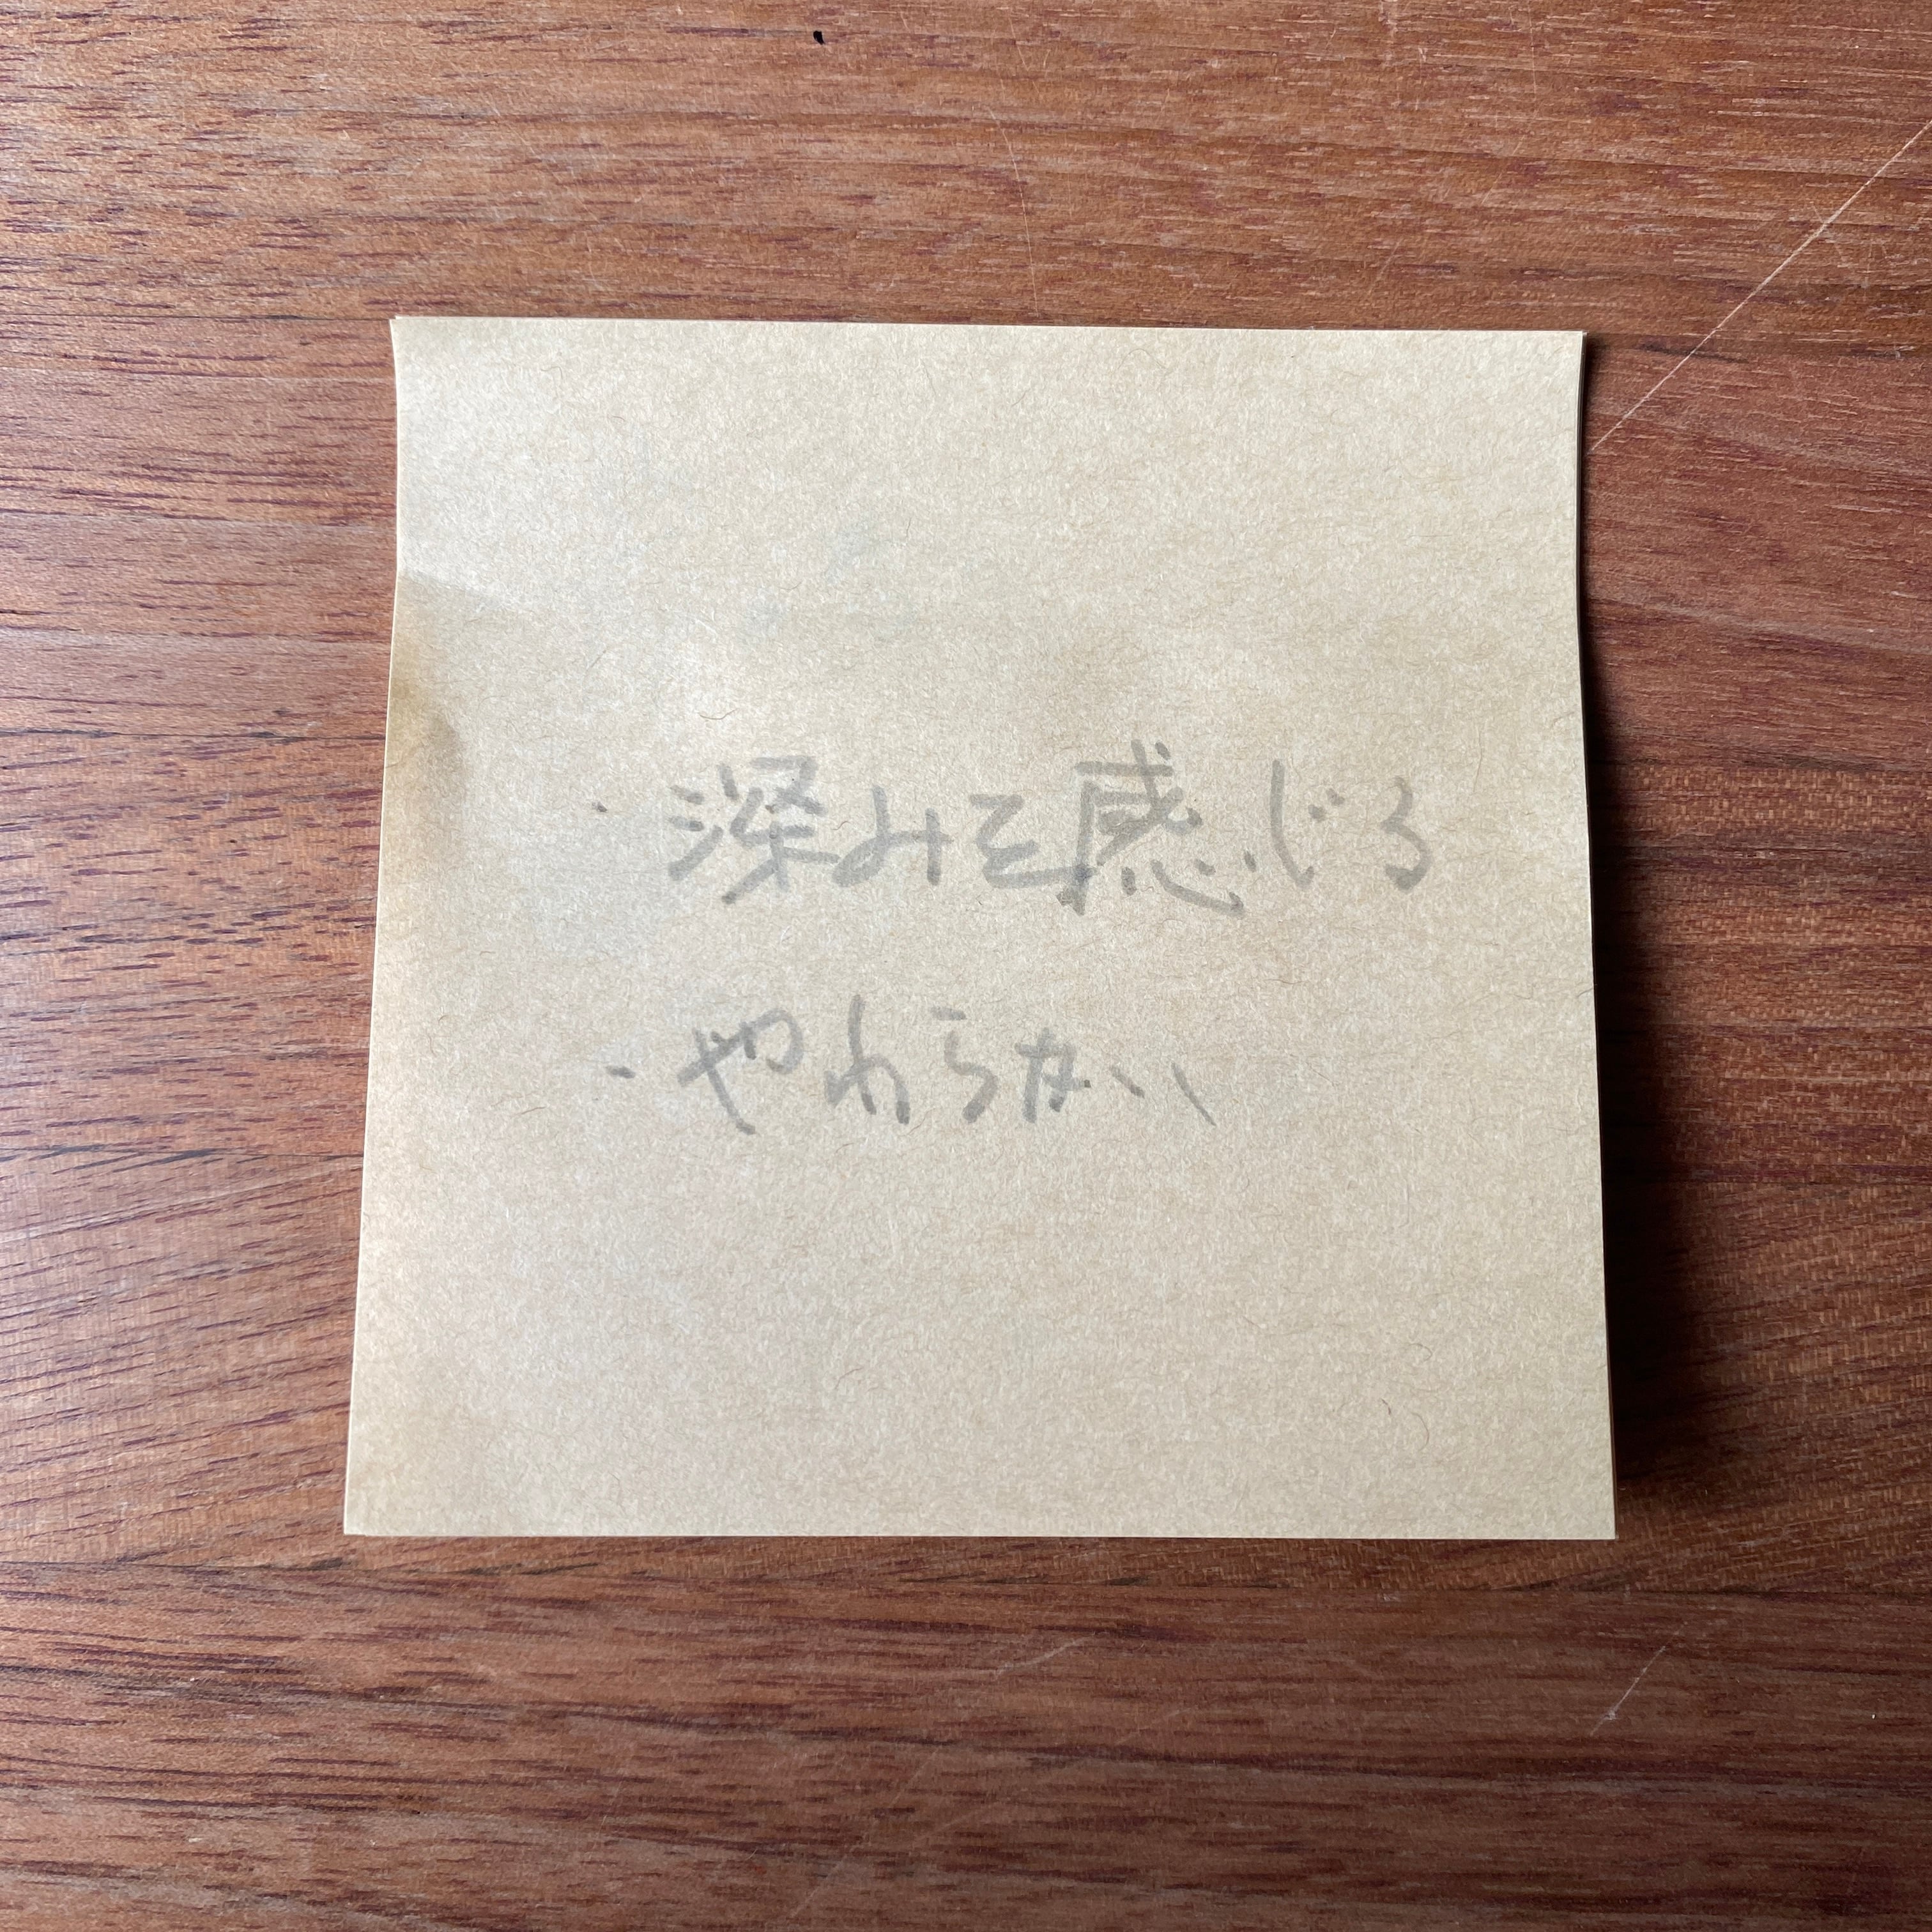 ・深みを感じる
・やわらかい